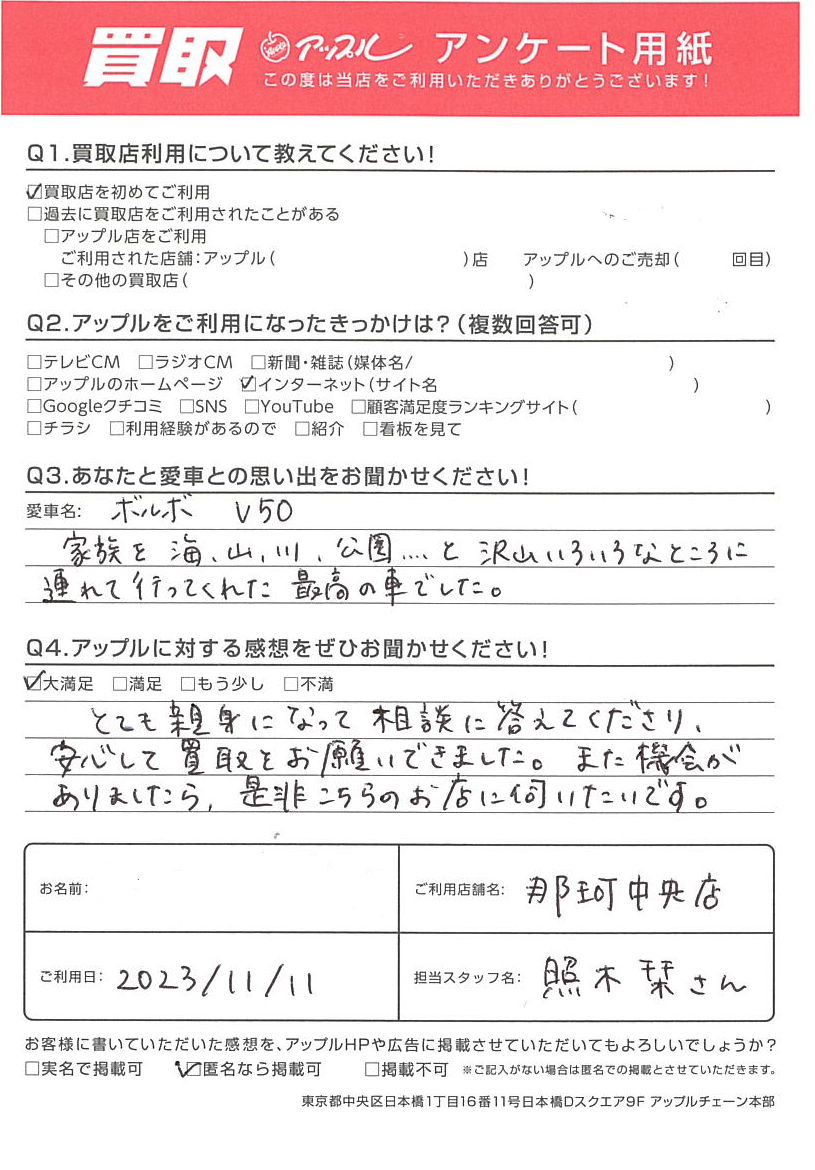 買取 アップル アンケート用紙
この度は当店をご利用いただきありがとうございます!
Q1.買取店利用について教えてください!
☑買取店を初めてご利用
□過去に買取店をご利用されたことがある
□アップル店をご利用
ご利用された店舗:アップル( )店 アップルへのご売却( 回目)
□その他の買取店( )
Q2.アップルをご利用になったきっかけは?(複数回答可)
□テレビCM □ラジオCM □新聞・雑誌(媒体名/ )
□アップルのホームページ ☑インターネット(サイト名 )
□Googleクチコミ □SNS □YouTube □顧客満足度ランキングサイト( )
□チラシ □利用経験があるので □紹介 □看板を見て
Q3.あなたと愛車との思い出をお聞かせください!
愛車名: ボルボ V50
家族を海、山、川、公園....と沢山いろいろなところに
連れて行ってくれた最高の車でした。
Q4.アップルに対する感想をぜひお聞かせください!
☑大満足 □満足 □もう少し □不満
とても親身になって相談に答えてくださり、
安心して買取をお願いできました。また機会が
ありましたら、是非こちらのお店に伺いたいです。
お名前:
ご利用店舗名: 那珂中央店
ご利用日: 2023/11/11
担当スタッフ名: 照木 栞さん
お客様に書いていただいた感想を、アップルHPや広告に掲載させていただいてもよろしいでしょうか?
□実名で掲載可 ☑匿名なら掲載可 □掲載不可 ※ご記入がない場合は匿名での掲載とさせていただきます。
東京都中央区日本橋1丁目16番11号日本橋Dスクエア9F アップルチェーン本部